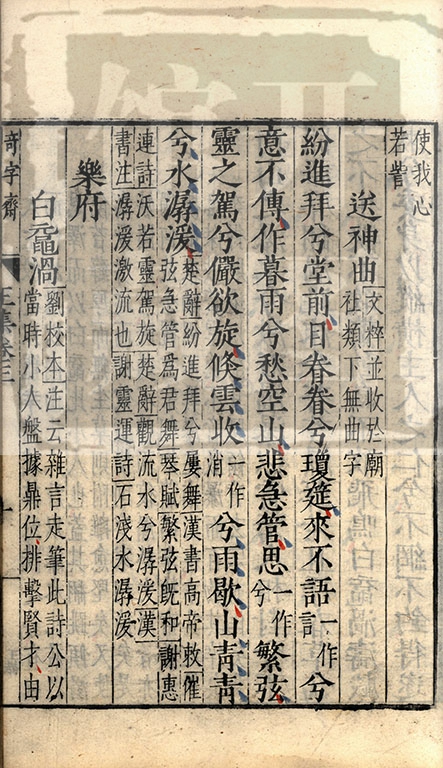 使我心
若
送神曲 文粹並收於廟
社類下無曲字
紛進拜兮堂前目眷眷兮瓊筵來不語 一作言 兮
意不傳作暮雨兮愁空山悲急管思 一作兮 繁弦
靈之駕兮儼欲旋倐雲收 一作消 兮雨歇山青青
兮水潺湲 楚辭紛進拜兮屢舞漢書高帝敕催
弦急管爲君舞琴賦繁弦旣和謝惠
連詩沃若靈駕旋楚辭觀流水兮潺湲漢
書注潺湲激流也謝靈運詩石淺水潺湲
樂府
白黿渦 劉校本注云雜言走筆此詩公以
當時小人盤據鼎位排擊賢才由
奇字齋 王集卷三